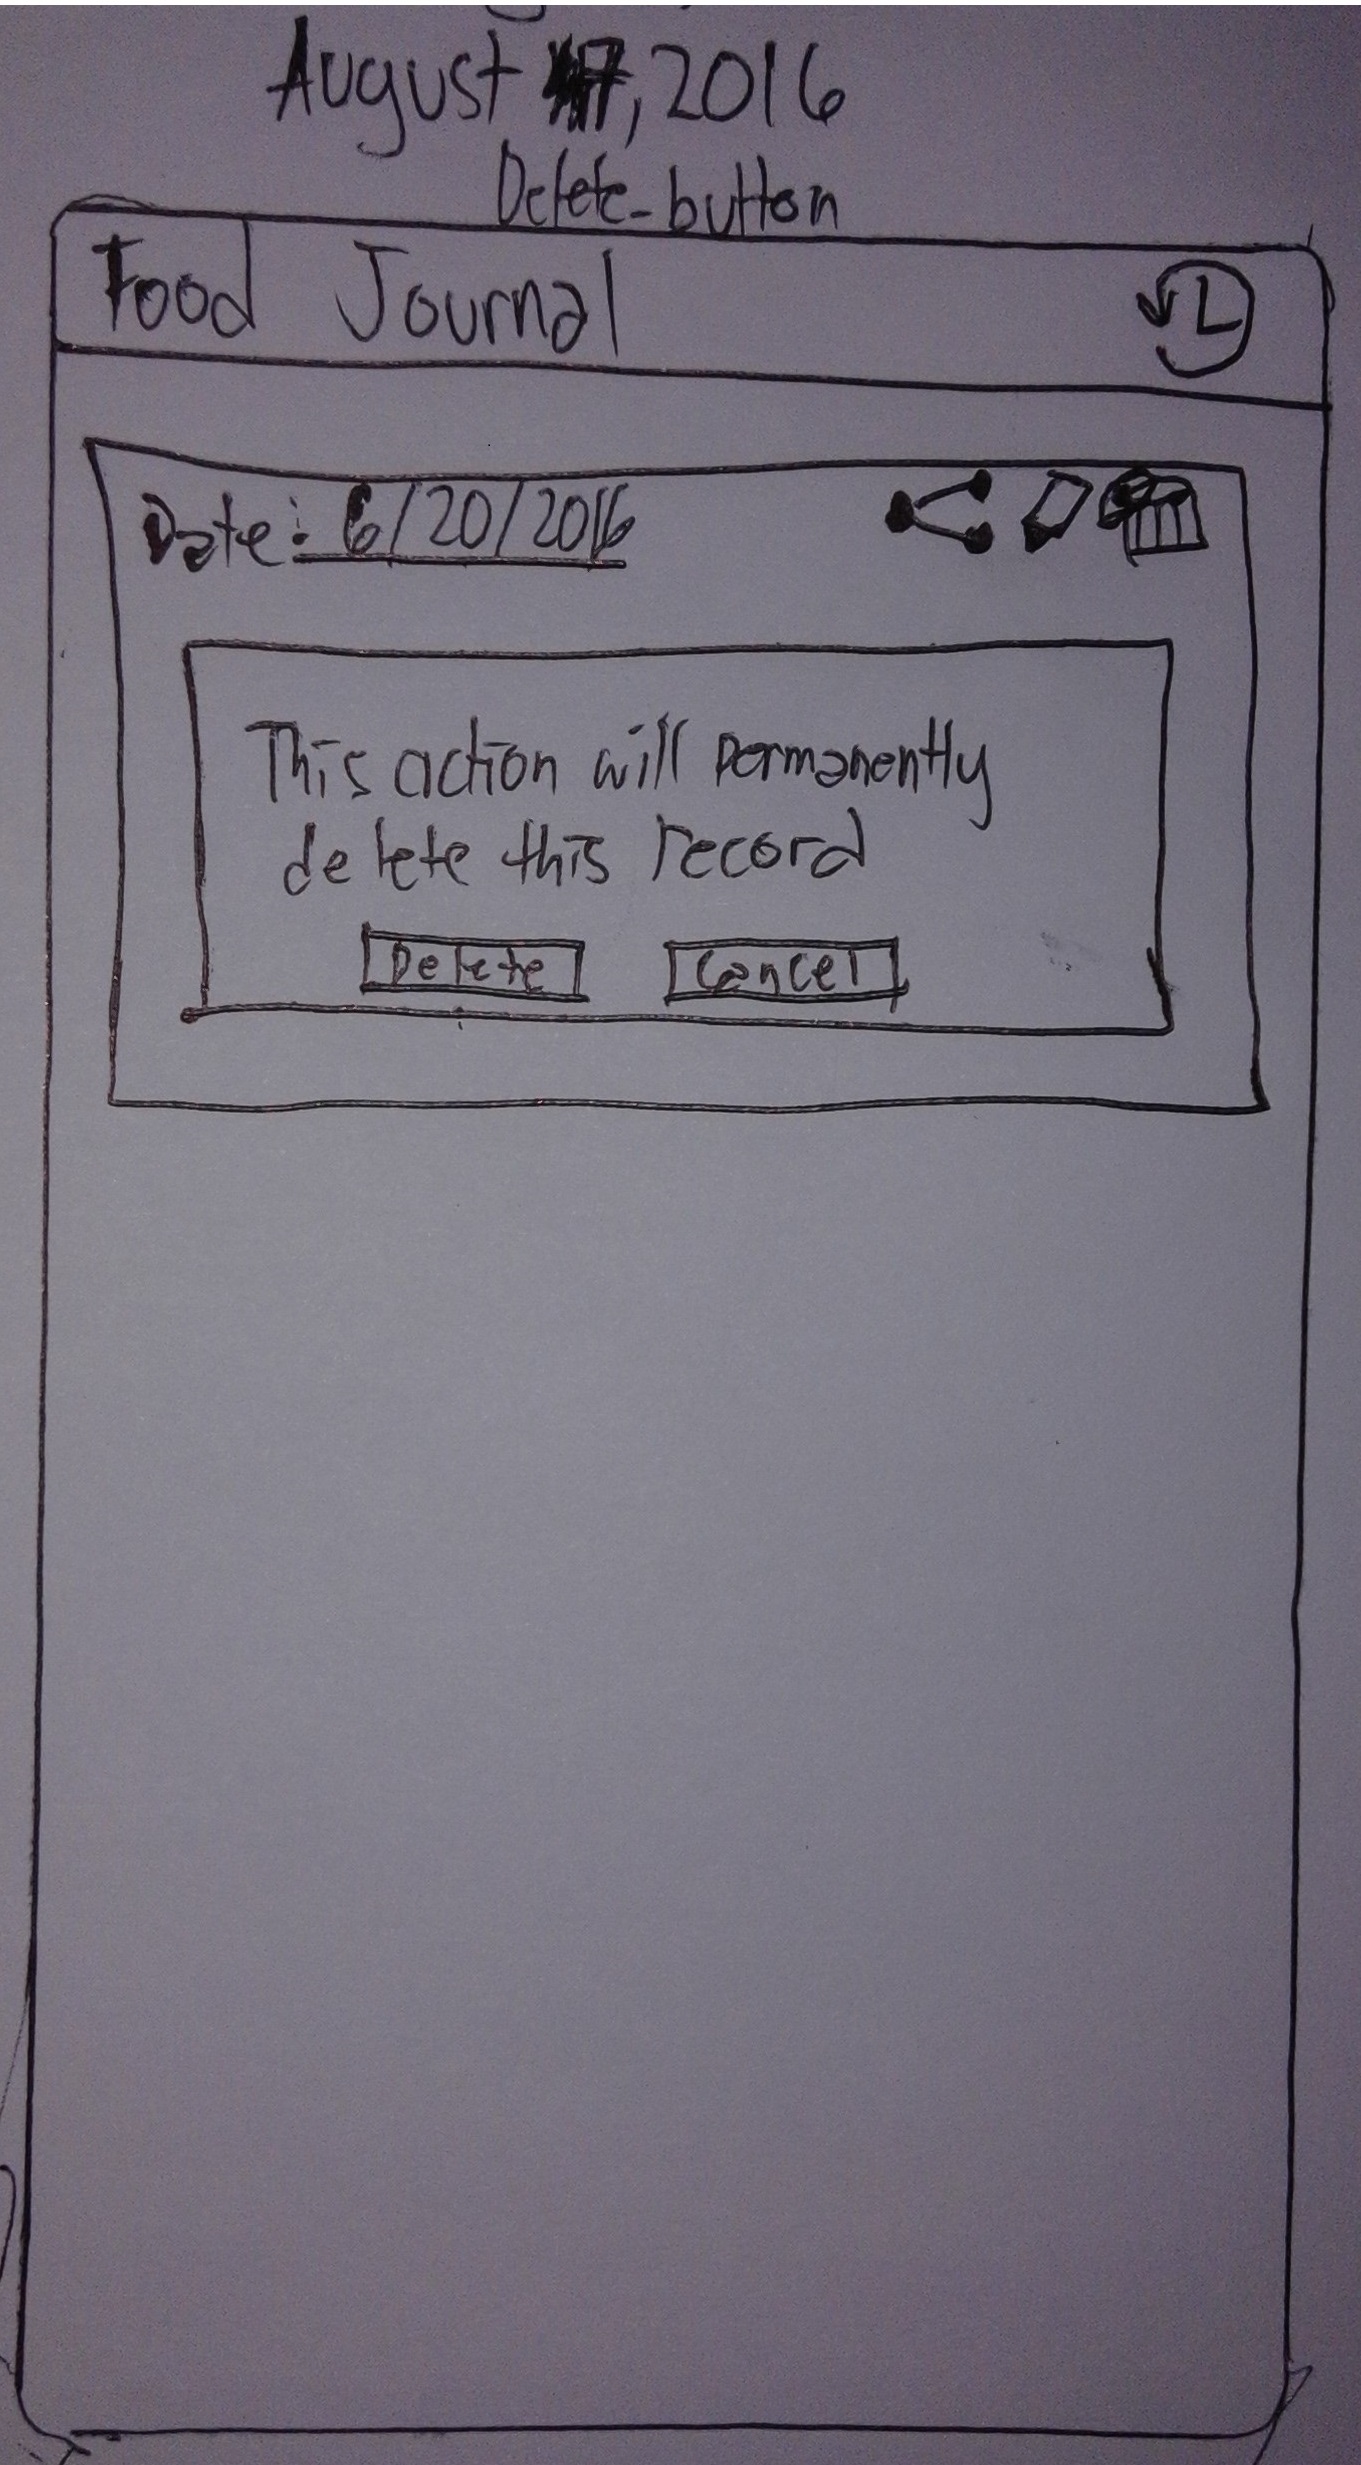 August 17, 2016
Delete-button
Food Journal
Date: 6/20/2016
This action will permanently
delete this record
Delete Cancel